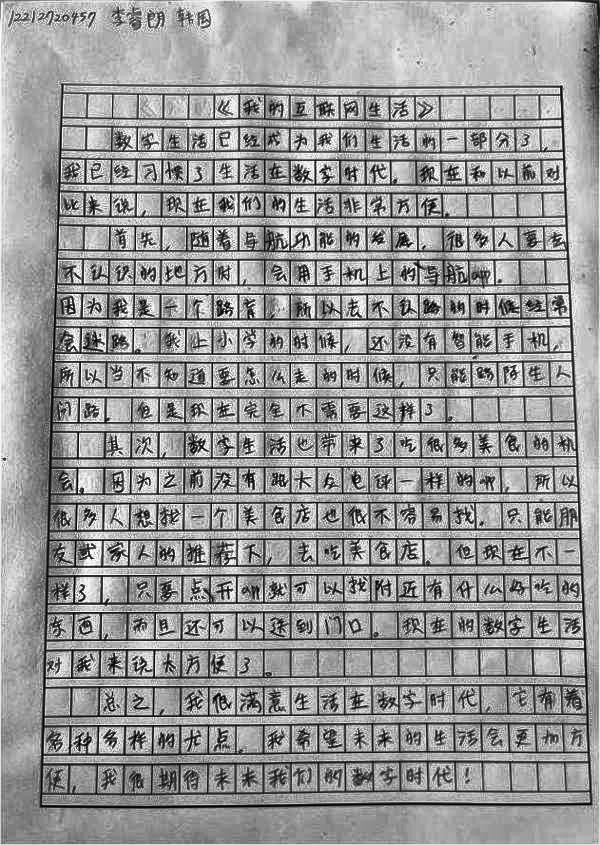 12212720457 李睿朗 韩国
《我的互联网生活》
数字生活已经成为我们生活的一部分了，
我已经习惯了生活在数字时代。现在和以前对
比来说，现在我们的生活非常方便。
首先，随着导航功能的发展，很多人要去
不认识的地方时，会用手机上的导航app。
因为我是一个路盲 所以去不认路的时候经常
会迷路。我上小学的时候，还没有智能手机，
所以当不知道要怎么走的时候，只能跟陌生人
问路。但是现在完全不需要这样了。
其次，数字生活也带来了吃很多美食的机
会。因为之前没有跟大众电评一样的app，所以
很多人想找一个美食店也很不容易找。只能朋
友或家人的推荐下，去吃美食店。但现在不一
样了，只要点开app就可以找附近有什么好吃的
东西，而且还可以送到门口。现在的数字生活
对我来说太方便了。
总之，我很满意生活在数字时代，它有着
各种多样的尤点。我希望未来的生活会更加方
便，我很期待未来我们的数字时代！